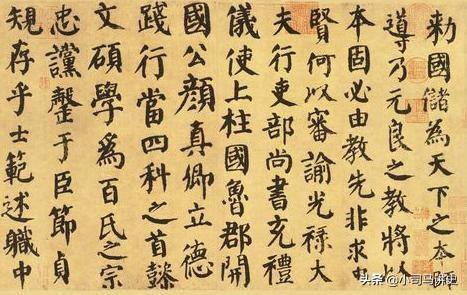 勅國儲為天下之本師
導乃元良之教將以
本固必由教先非求忠
賢何以審諭光祿大
夫行吏部尚書充禮
儀使上柱國魯郡開
國公顏真卿立德
踐行當四科之首懿
文碩學爲百氏之宗
忠讜罄于臣節貞
規存乎士範述職中
头条 @小司马讲史